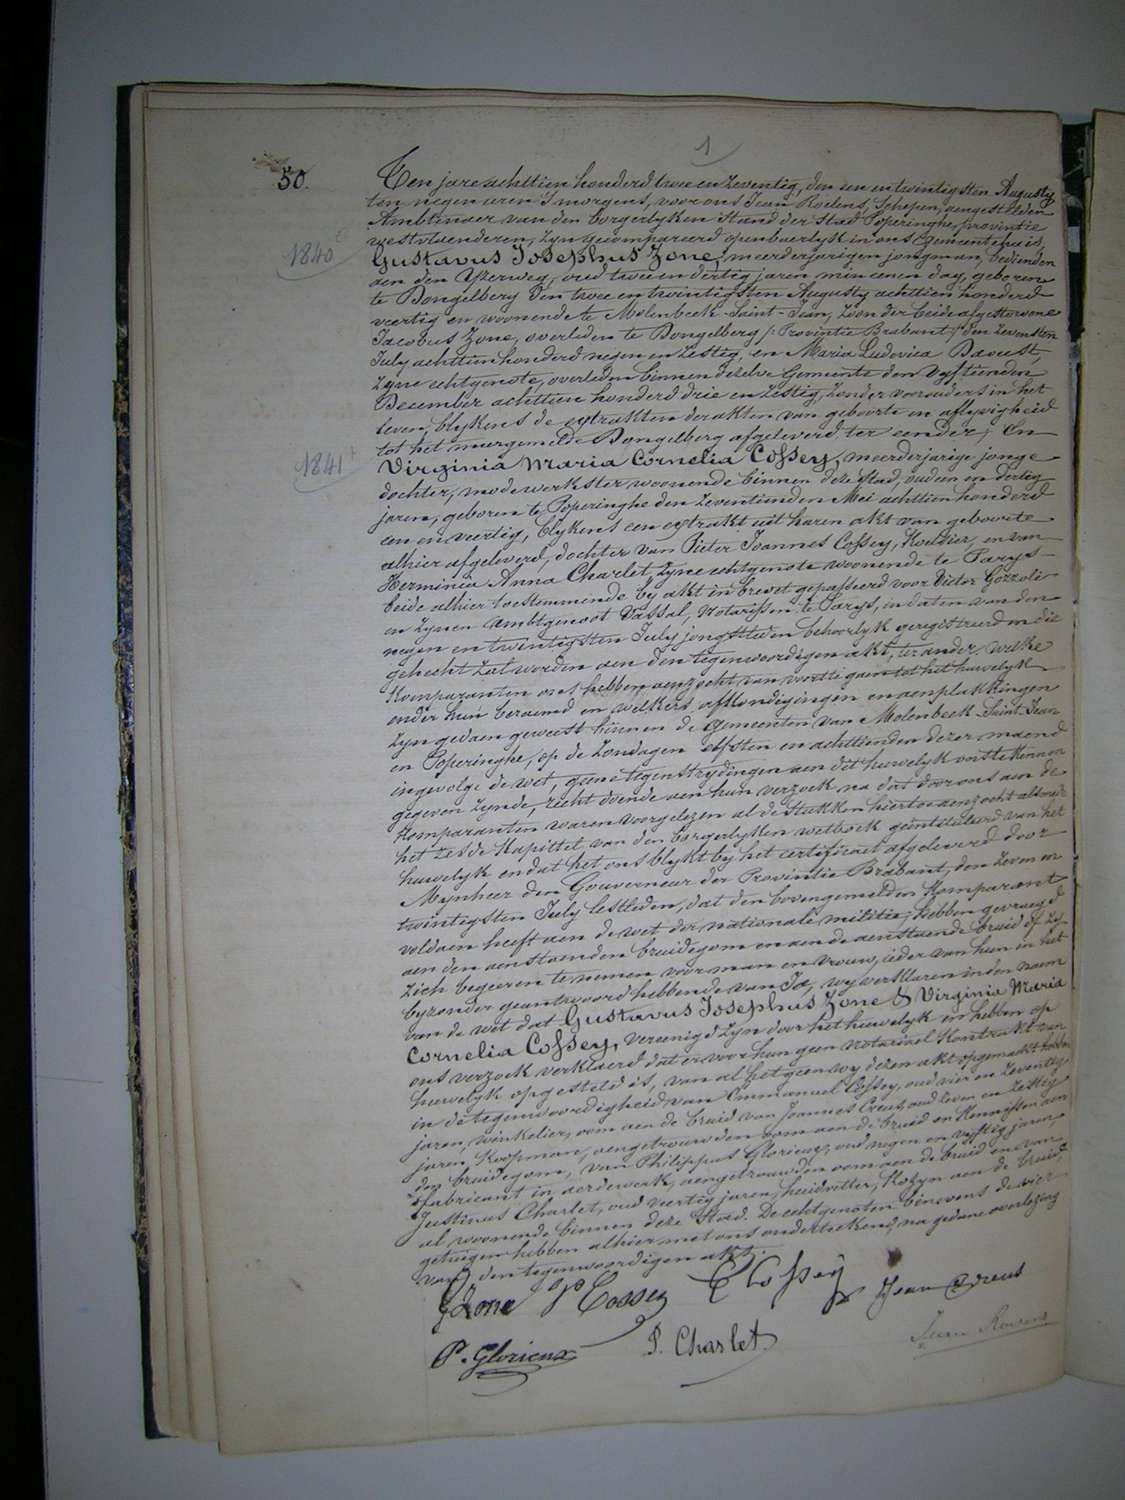 1
50.
Ten jare achttien honderd twee en zeventig, den een en twintigsten Augusty
ten negen uren 's morgens, voor ons Jean Roelens, Schepen, aengestelden
Ambtenaer van den borgerlyken Stand der Stad Poperinghe, provintie
westvlaenderen, zyn gecompareerd openbaerlyk in ons Gemeentehuis,
1840
Gustavus Josephus Zone, meerderjarigen jongman, bedienden
aen den Yzerweg, oud twee en dertig jaren, min eenen dag, geboren
te Dongelberg den twee en twintigsten Augusty achttien honderd
veertig en woonende te Molenbeek-Saint-Jean, zoon der beide afgestorvene
Jacobus Zone, overleden te Dongelberg /:Provintie Brabant:/ den zevensten
July achttien honderd negen en zestig, en Maria Ludovica Davest,
zyne echtgenote, overleden binnen dezelve Gemeente den vyftienden
December achttien honderd drie en zestig, zonder voorouders in het
leven, blykens de extrakten der akten van geboorte en aflyvigheid
tot het meergemelde Dongelberg afgeleverd, ter eender; En
1841
Virginia Maria Cornelia Cossey, meerderjarige jonge
dochter, modewerkster woonende binnen deze Stad, oud een en dertig
jaren, geboren te Poperinghe den zeventienden Mei achttien honderd
een en veertig, blykens een extrakt uit haren akt van geboorte
alhier afgeleverd, dochter van Pieter Joannes Cossey, Koetsier, en van
Herminia Anna Charlet, zyne echtgenote woonende te Parys
beide alhier toestemmende by akt in brevet gepasseerd voor Victor Gozzoli
en zynen ambtgenoot Vassal, Notarissen te Parys, in daten van den
negen en twintigsten July jongstleden behoorlyk geregistreerd en die
gehecht zal worden aen den tegenwoordigen akt, ter ander. welke
Komparanten ons hebben aenzocht van voorts te gaen tot het huwelyk
onder hun beraemd en welkers afkondigingen en aenplakkingen
zyn gedaen geweest binnen de Gemeenten van Molenbeek-Saint-Jean
en Poperinghe, op de zondagen elfsten en achttienden dezer maend
ingevolge de wet, geene tegenstrydingen aen dit huwelyk ons te kennen
gegeven zynde, recht doende aen hun verzoek, na dat door ons aen de
Komparanten waren voorgelezen al de stukken hiertoe aenzocht alsmede
het zesde Kapittel van den borgerlyken wetboek geïntituleerd van het
huwelyk en dat het ons blykt by het certificaet afgeleverd door
Mynheer den Gouverneur der Provintie Brabant, den zeven en
twintigsten July lestleden, dat den bovengemelden Komparant
voldaen heeft aen de wet der nationale militie, hebben gevraegd
aen den aenstaenden bruidegom en aen de aenstaende bruid of zy
zich begeeren te nemen voor man en vrouw, ieder van hun in het
byzonder geantwoord hebbende van Ja, wy verklaren in den naem
van de wet dat Gustavus Josephus Zone & Virginia Maria
Cornelia Cossey, vereenigd zyn door het huwelyk en hebben op
ons verzoek verklaerd dat er voor hun geen notariael Kontrakt van
huwelyk opgesteld is, van al hetgeen wy dezen akt opgemaekt hebben
in de tegenwoordigheid van Emmanuel Cossey, oud vier en zeventig
jaren, winkelier, oom aen de bruid van Joannes Creus, oud zeven en zestig
jaren, Koopman, aengetrouwden oom aen de bruid en kennissen aen
den bruidegom, van Philippus Glorieux, oud negen en vyftig jaren,
fabricant in aerdewerk, aengetrouwden oom aen de bruid en van
Justinus Charlet, oud veertig jaren, huidvetter, Kozyn aen de bruid,
al woonende binnen deze Stad. De echtgenoten benevens de vier
getuigen hebben alhier met ons onderteekend, na gedane overlezing
van den tegenwoordigen akt.
GZone V Cossey E Cossey Jean Creus
P. Glorieux J. Charlet Jean Roelens